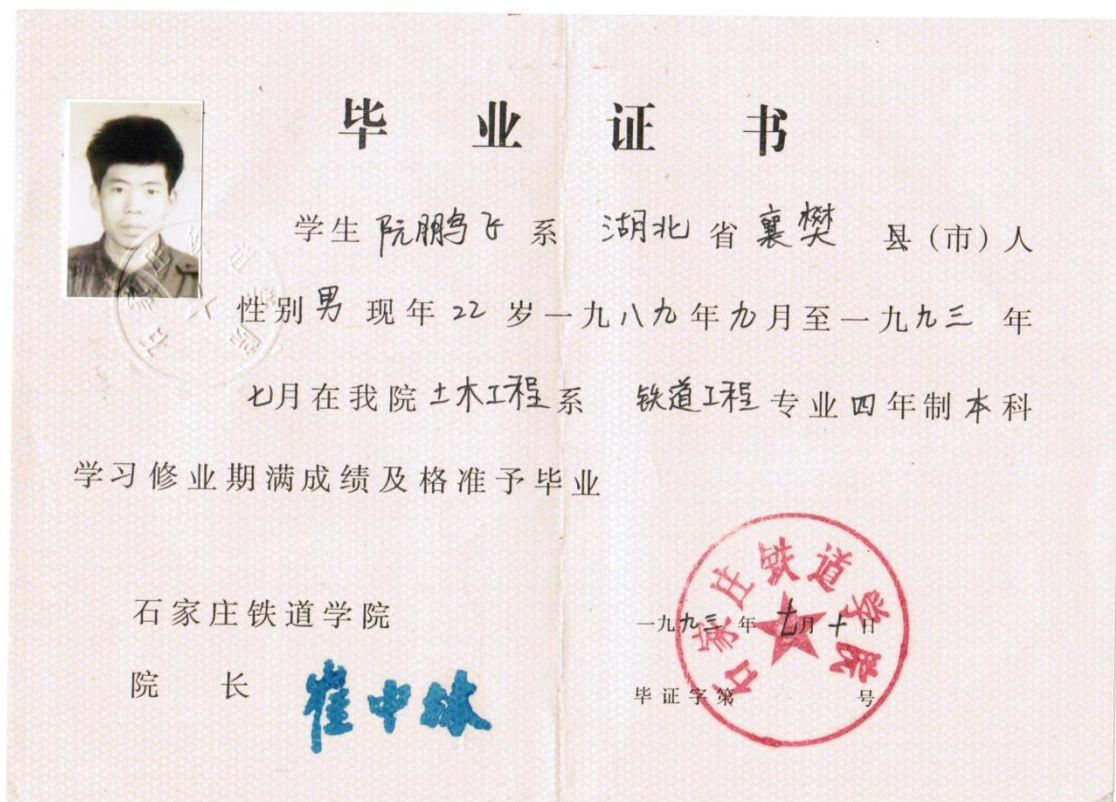 毕业证书
学生 阮鹏飞 系 湖北 省 襄樊 县(市)人
性别 男 现年 22 岁一九八九年九月至一九九三 年
七月在我院 土木工程 系 铁道工程 专业 四 年制 本 科
学习修业期满成绩及格准予毕业
石家庄铁道学院
院 长 崔中林
石家庄铁道学院
一九九三年 七月十日
毕证字第 号